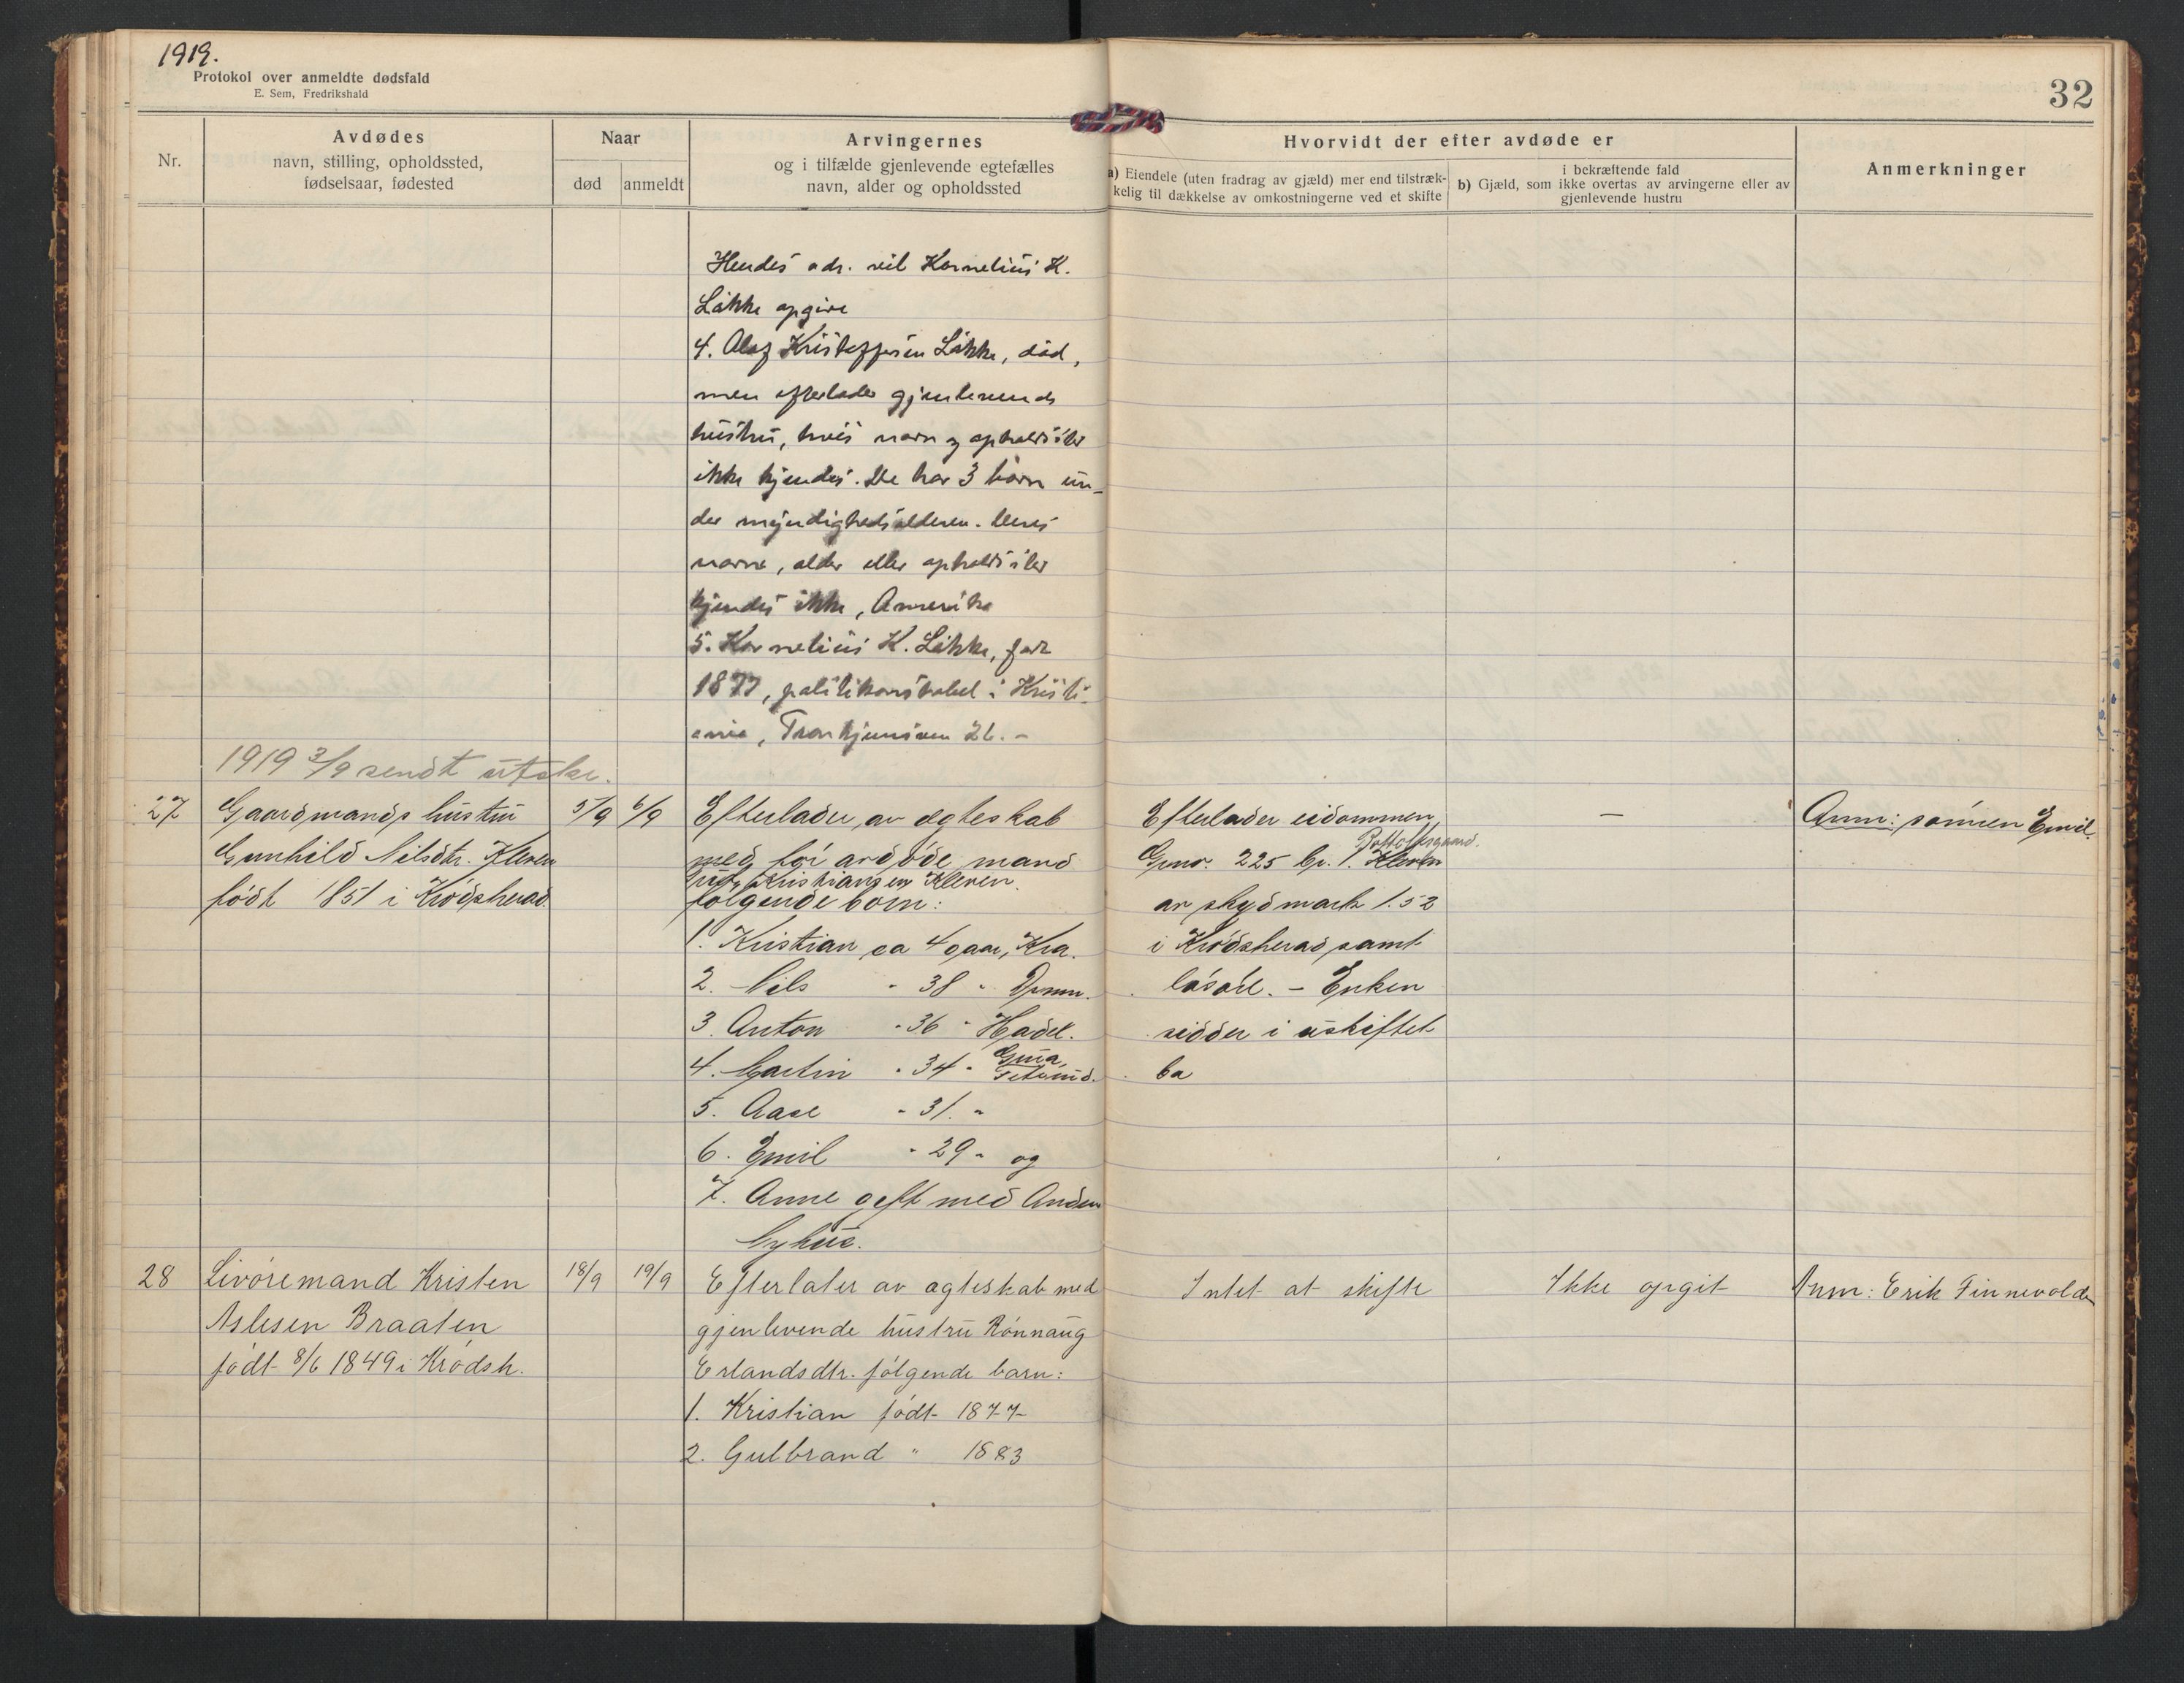 1919.
Protokol over anmeldte dødsfald
E. Sem, Fredrikshald
32
Nr.
Avdødes
navn, stilling, opholdssted,
fødselsaar, fødested
Naar
død
anmeldt
Arvingernes
og i tilfælde gjenlevende egtefælles
navn, alder og opholdssted
Hvorvidt der efter avdøde er
a) Eiendele (uten fradrag av gjæld) mer end tilstræk-
kelig til dækkelse av omkostningerne ved et skifte
i bekræftende fald
b) Gjæld, som ikke overtas av arvingerne eller av
gjenlevende hustru
Anmerkninger
Hendes adr. vil Kornelius K.
Løkke opgive
4. Olaf Kristoffersen Løkke, død,
men efterlader gjenlevende
hustru, hvis navn og opholdssted
ikke kjendes. De har 3 barn un-
der myndighedsalderen. Deres
navne, alder eller opholdssted
kjendes ikke, Amerika
5. Kornelius K. Løkke, født
1877, politikonstabel i Kristi-
ania, 26. -
1919 3/9 sendt utske.
27
Gaardmands hustru
Gunhild Nilsdtr. Kleven
født 1851 i Krødsherad.
5/9
6/9
Efterlader av egteskab
med før avdøde mand
Kristiansen Kleven.
følgende børn:
1. Kristian ca 40 aar, Kra.
2. Nils " 38 " Drmn.
3. Anton " 36 " Hadel.
4. Martin " 34 "
5. Aase " 31. "
6. Emil " 29 " og
7. Anne gift med Anders
Myhre.
Efterlader eidommen
Gnr. 225 br. 1. Kleven
av skyldmark 1.52
i Krødsherad samt
løsøre. - Enken
sidder i uskiftet
bo
—
Anm: sønnen Emil
28
Livøremand Kristen
Aslesen Braaten
født 8/6 1849 i Krødsh.
18/9
19/9
Efterlater av ægteskab med
gjenlevende hustru Rønnaug
Erlandsdtr. følgende barn:
1. Kristian født 1877
2. Gulbrand " 1883
Intet at skifte
Ikke opgit
Anm: Erik Finnevolden